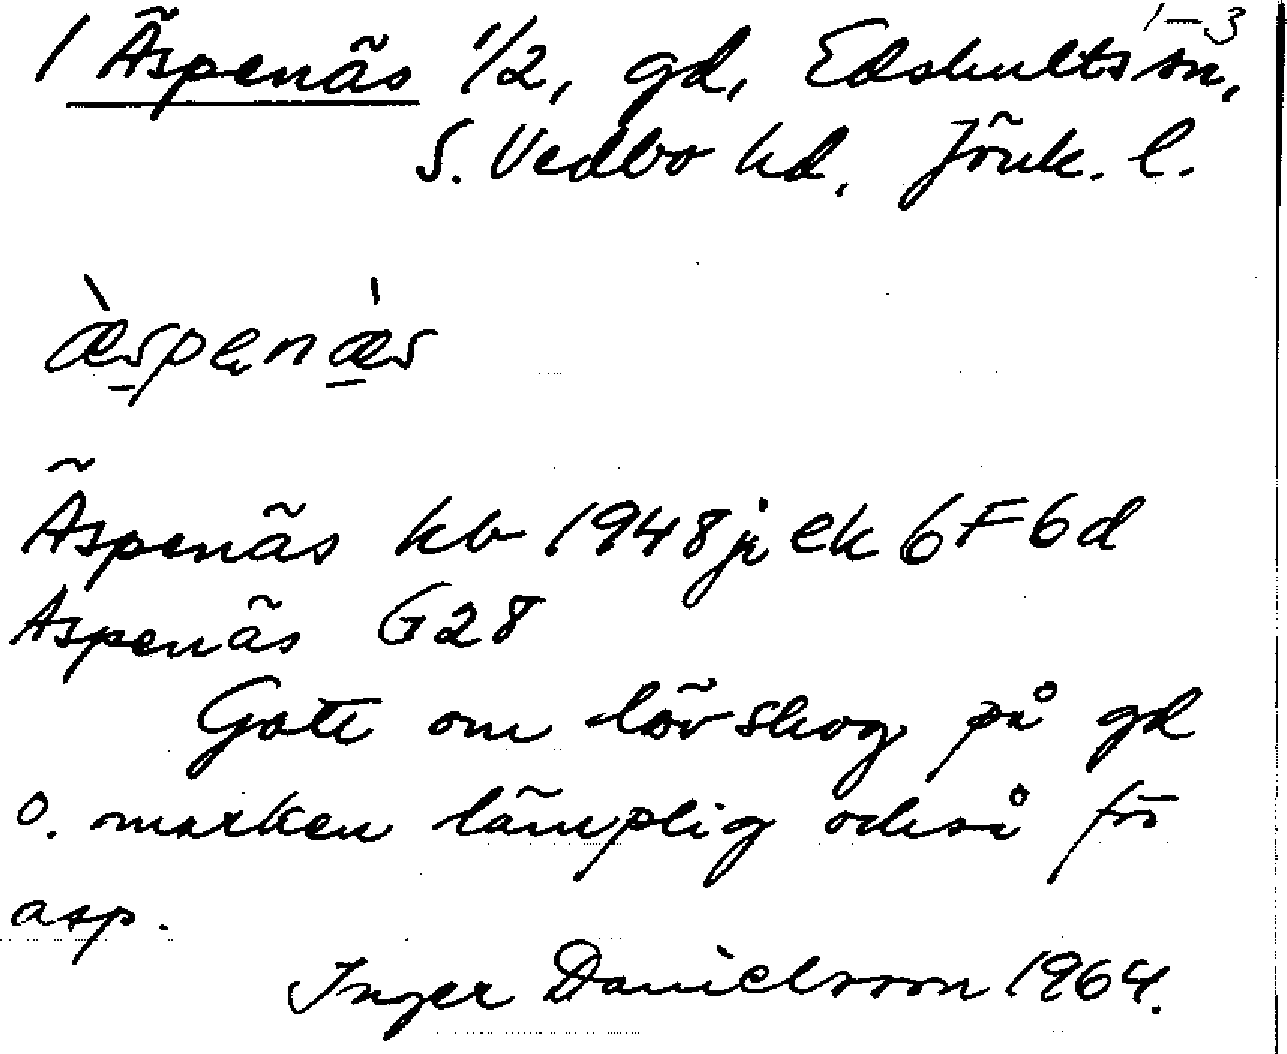 1-3
1 Äspenäs 1/2, gd, Edshults sn,
S. Vedbo hd. Jönk. l.
æ̀spenæ̀s
Äspenäs kb 1948 jr ek 6F6d
Aspenäs G28
Gott om lövskog på gd
o. marken lämplig också för
asp.
Inger Danielsson 1964.